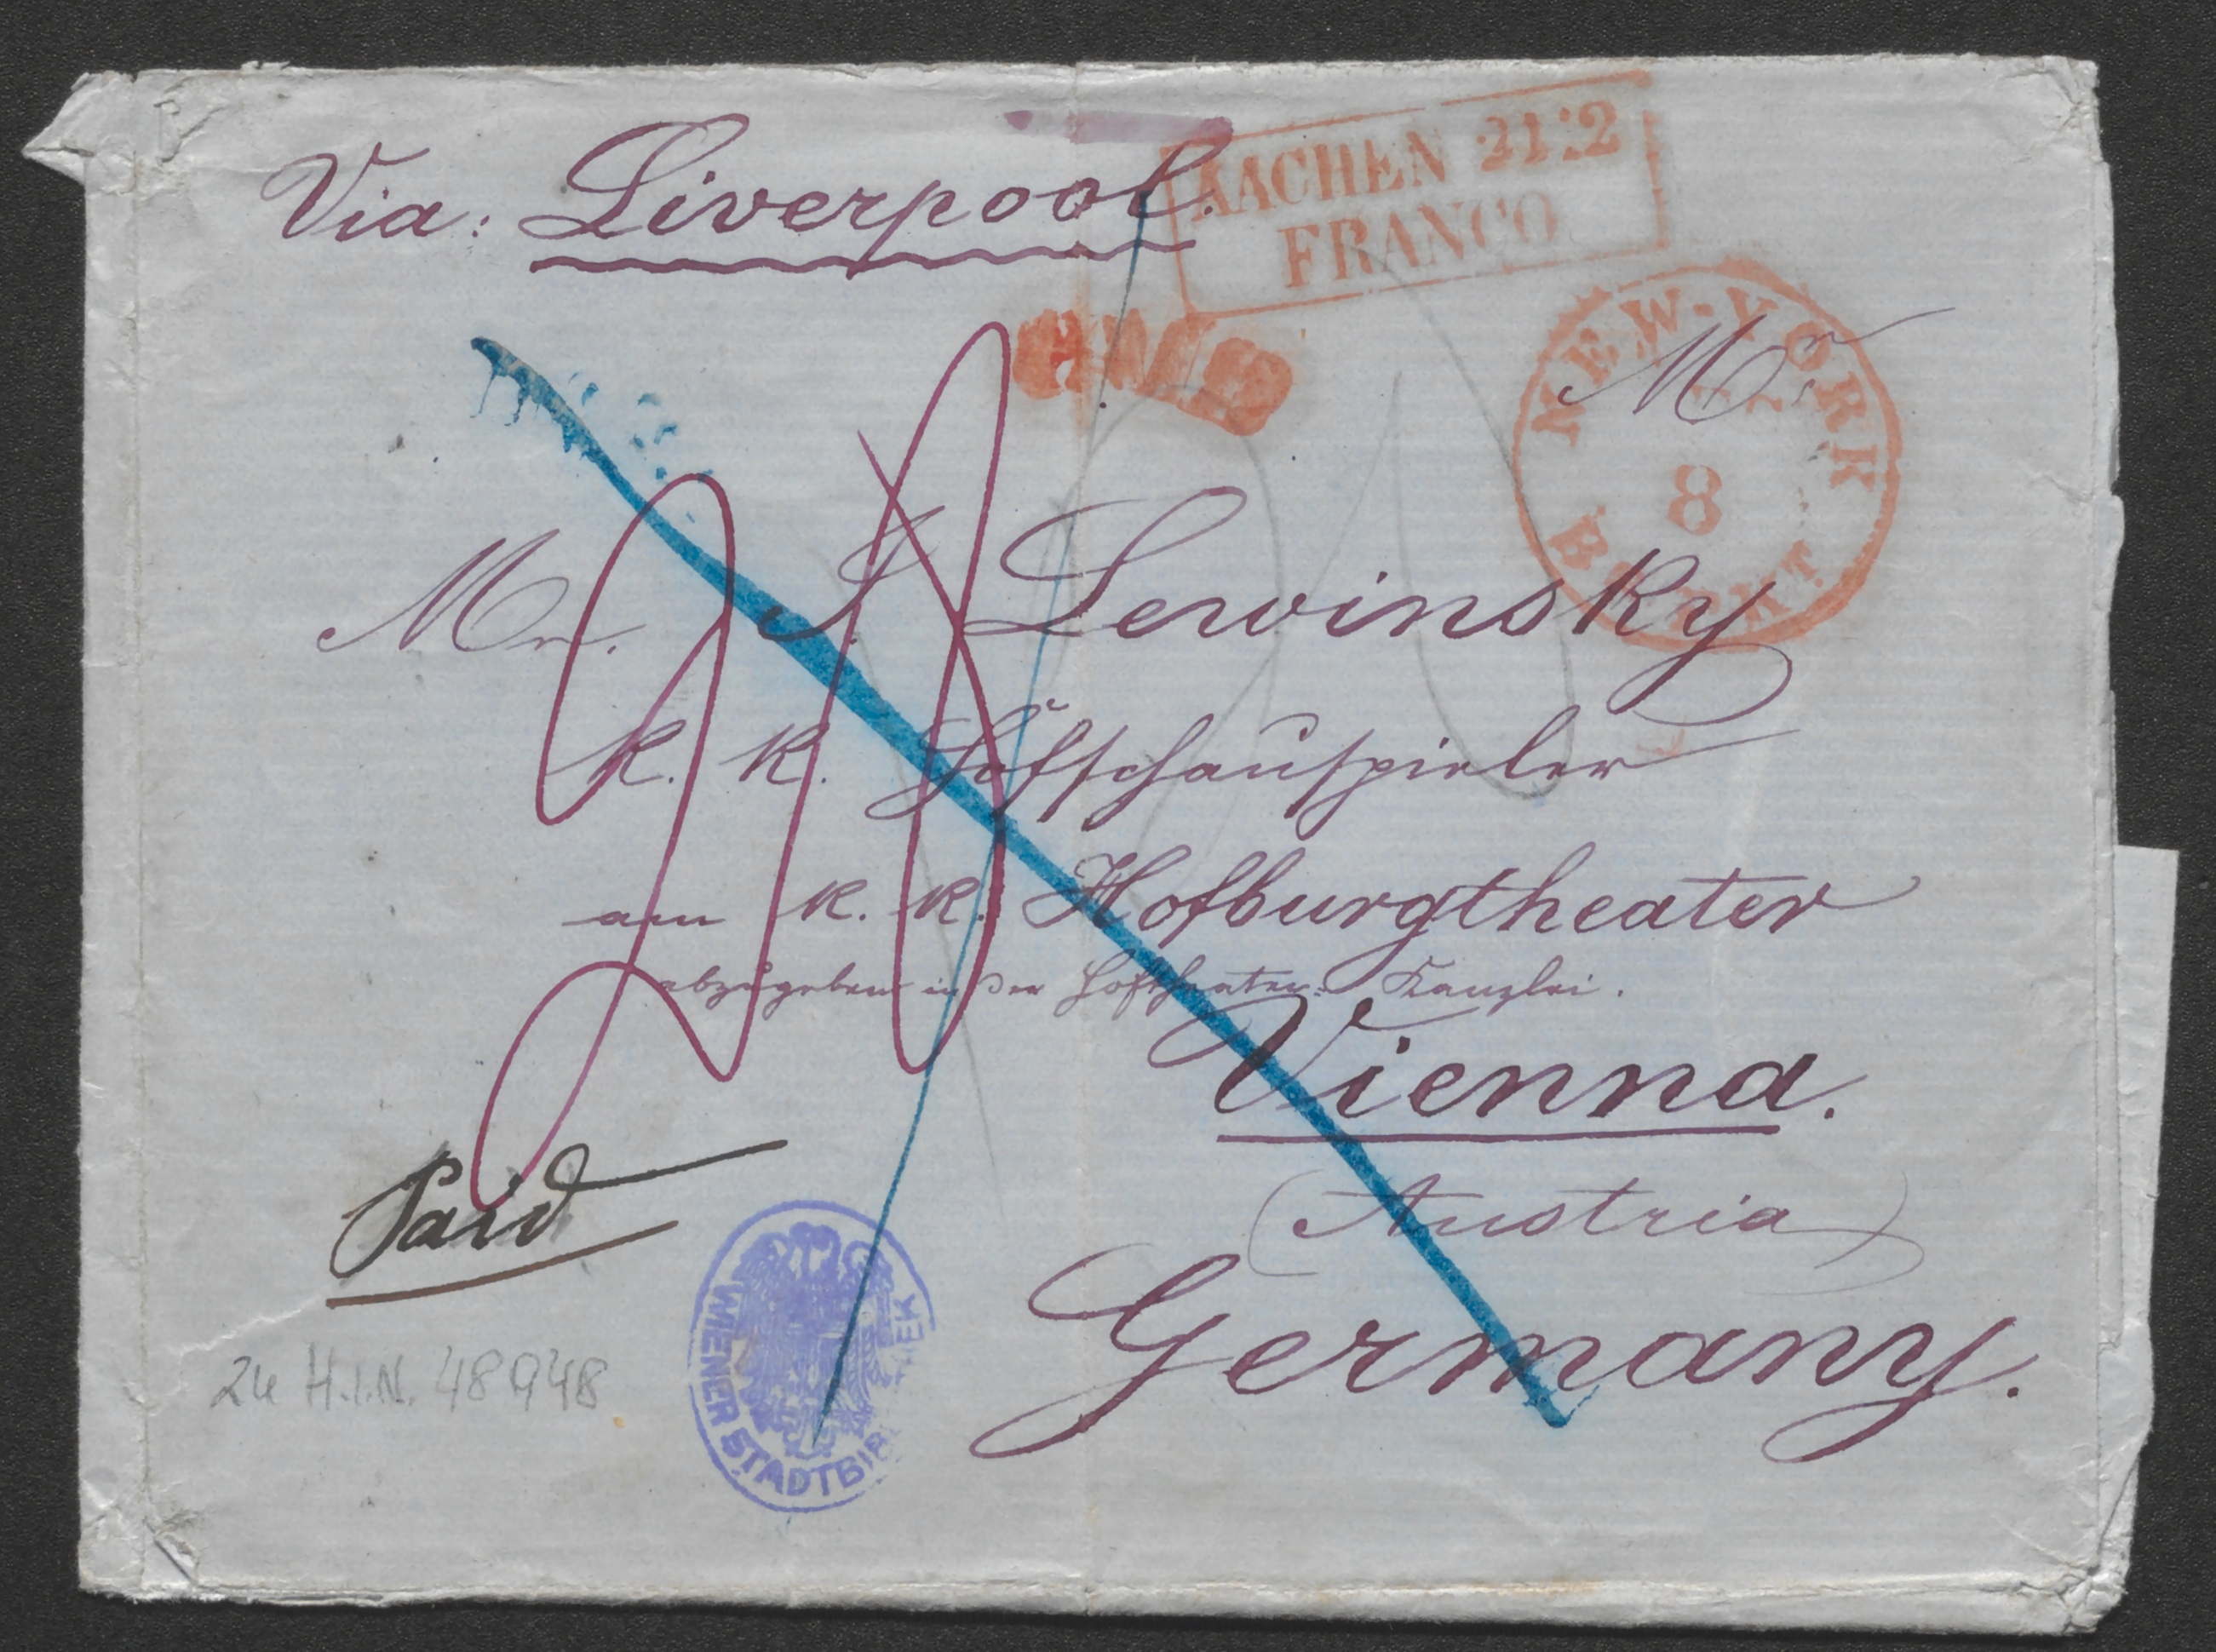 Via: Liverpool.
AACHEN 21 2
FRANCO
NEW-YORK
8
Mr
Mr. J. Lewinsky
k. k. Hofschauspieler
am k. k. Hofburgtheater
abzugeben in der Hoftheater-Kanzlei.
Vienna.
(Austria)
Germany.
Paid
WIENER STADTBIBLIOTHEK
zu H.I.N. 48948